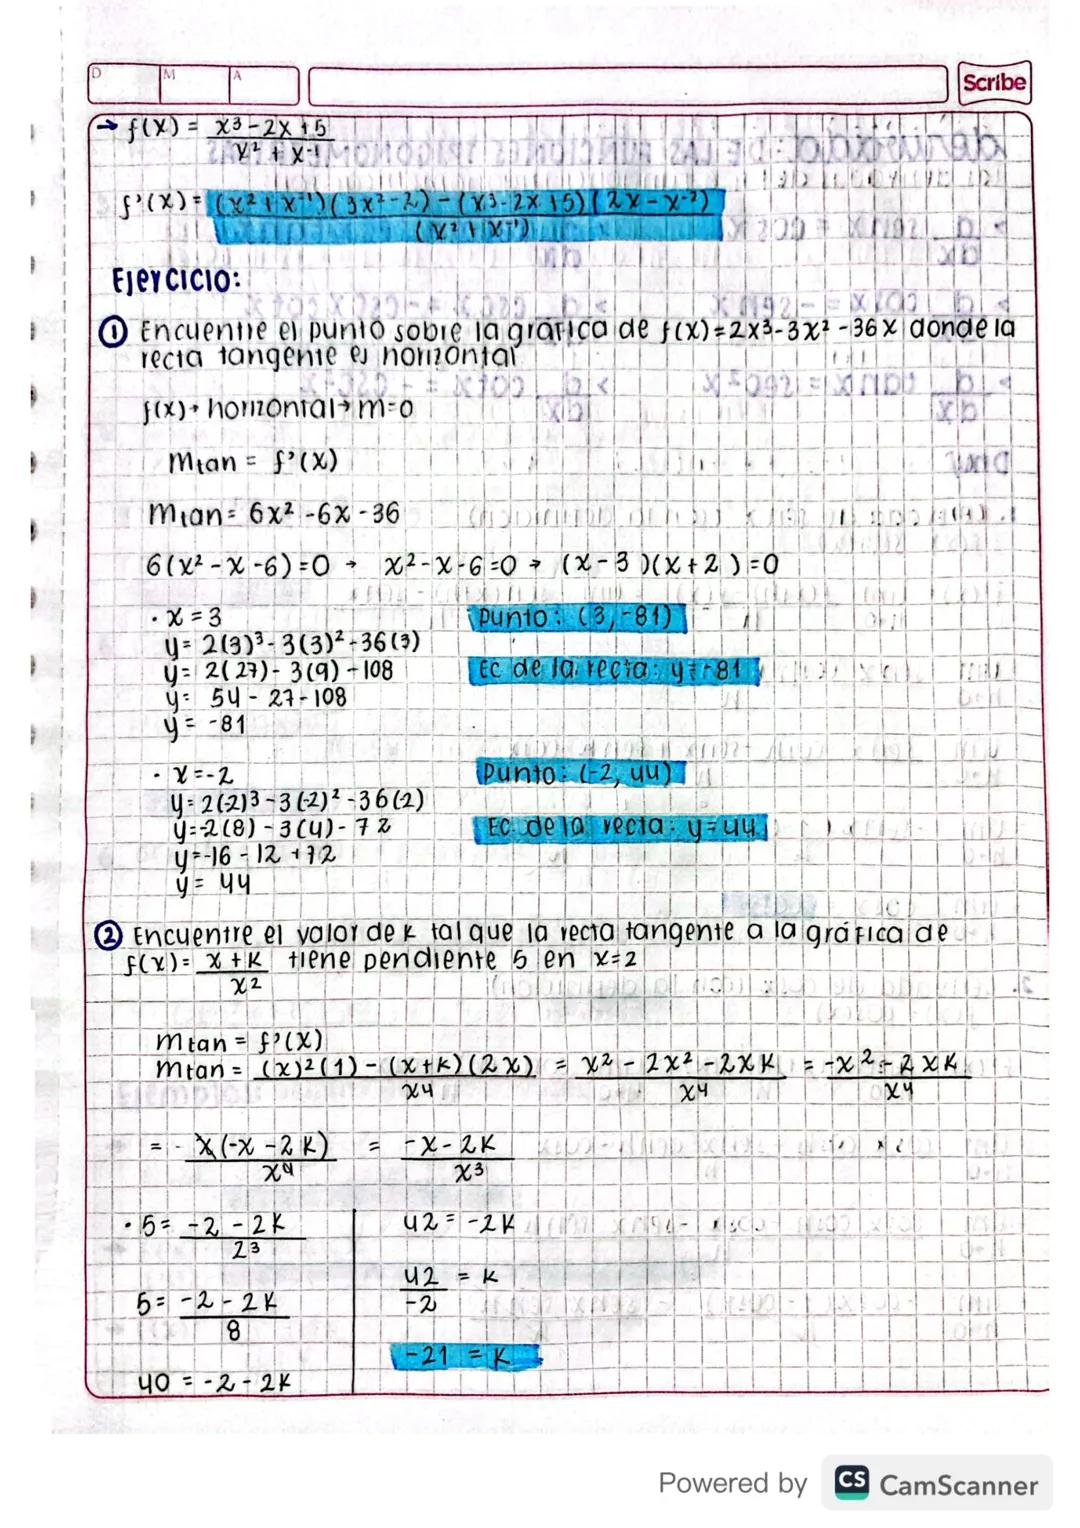 D M A
Scribe
→ f(x) = x³-2x+5 / x² + x⁻¹
f'(x) = (x²+x⁻¹)(3x²-2) - (x³-2x+5)(2x-x⁻²) / (x²+x⁻¹)
Ejercicio:
① Encuentre el punto sobre la gráfica de f(x)=2x³-3x²-36x donde la
recta tangente es horizontal
f(x)→ horizontal → m=0
Mtan = f'(x)
Mtan = 6x²-6x-36
6(x²-x-6)=0 → x²-x-6=0 → (x-3)(x+2)=0
· x = 3
Punto: (3,-81)
y= 2(3)³-3(3)²-36(3)
y= 2(27)-3(9)-108
Ec de la recta: y=-81
y= 54-27-108
y = -81
· x=-2
Punto: (-2, 44)
y= 2(-2)³-3(-2)²-36(-2)
y=-2(8)-3(4)-72
Ec de la recta: y=44
y=-16-12+72
y= 44
② Encuentre el valor de k tal que la recta tangente a la gráfica de
f(x)= x+k / x² tiene pendiente 5 en x=2
mtan = f'(x)
mtan = (x)²(1)-(x+k)(2x) / x4 = x²-2x²-2xk / x4 = -x²-2xk / x4
= - x(-x-2k) / x4 = -x-2k / x3
· 5= -2-2k / 2³
42=-2k
42 / -2 = k
5= -2-2k / 8
-21 = k
40 = -2-2k
Powered by CS CamScanner